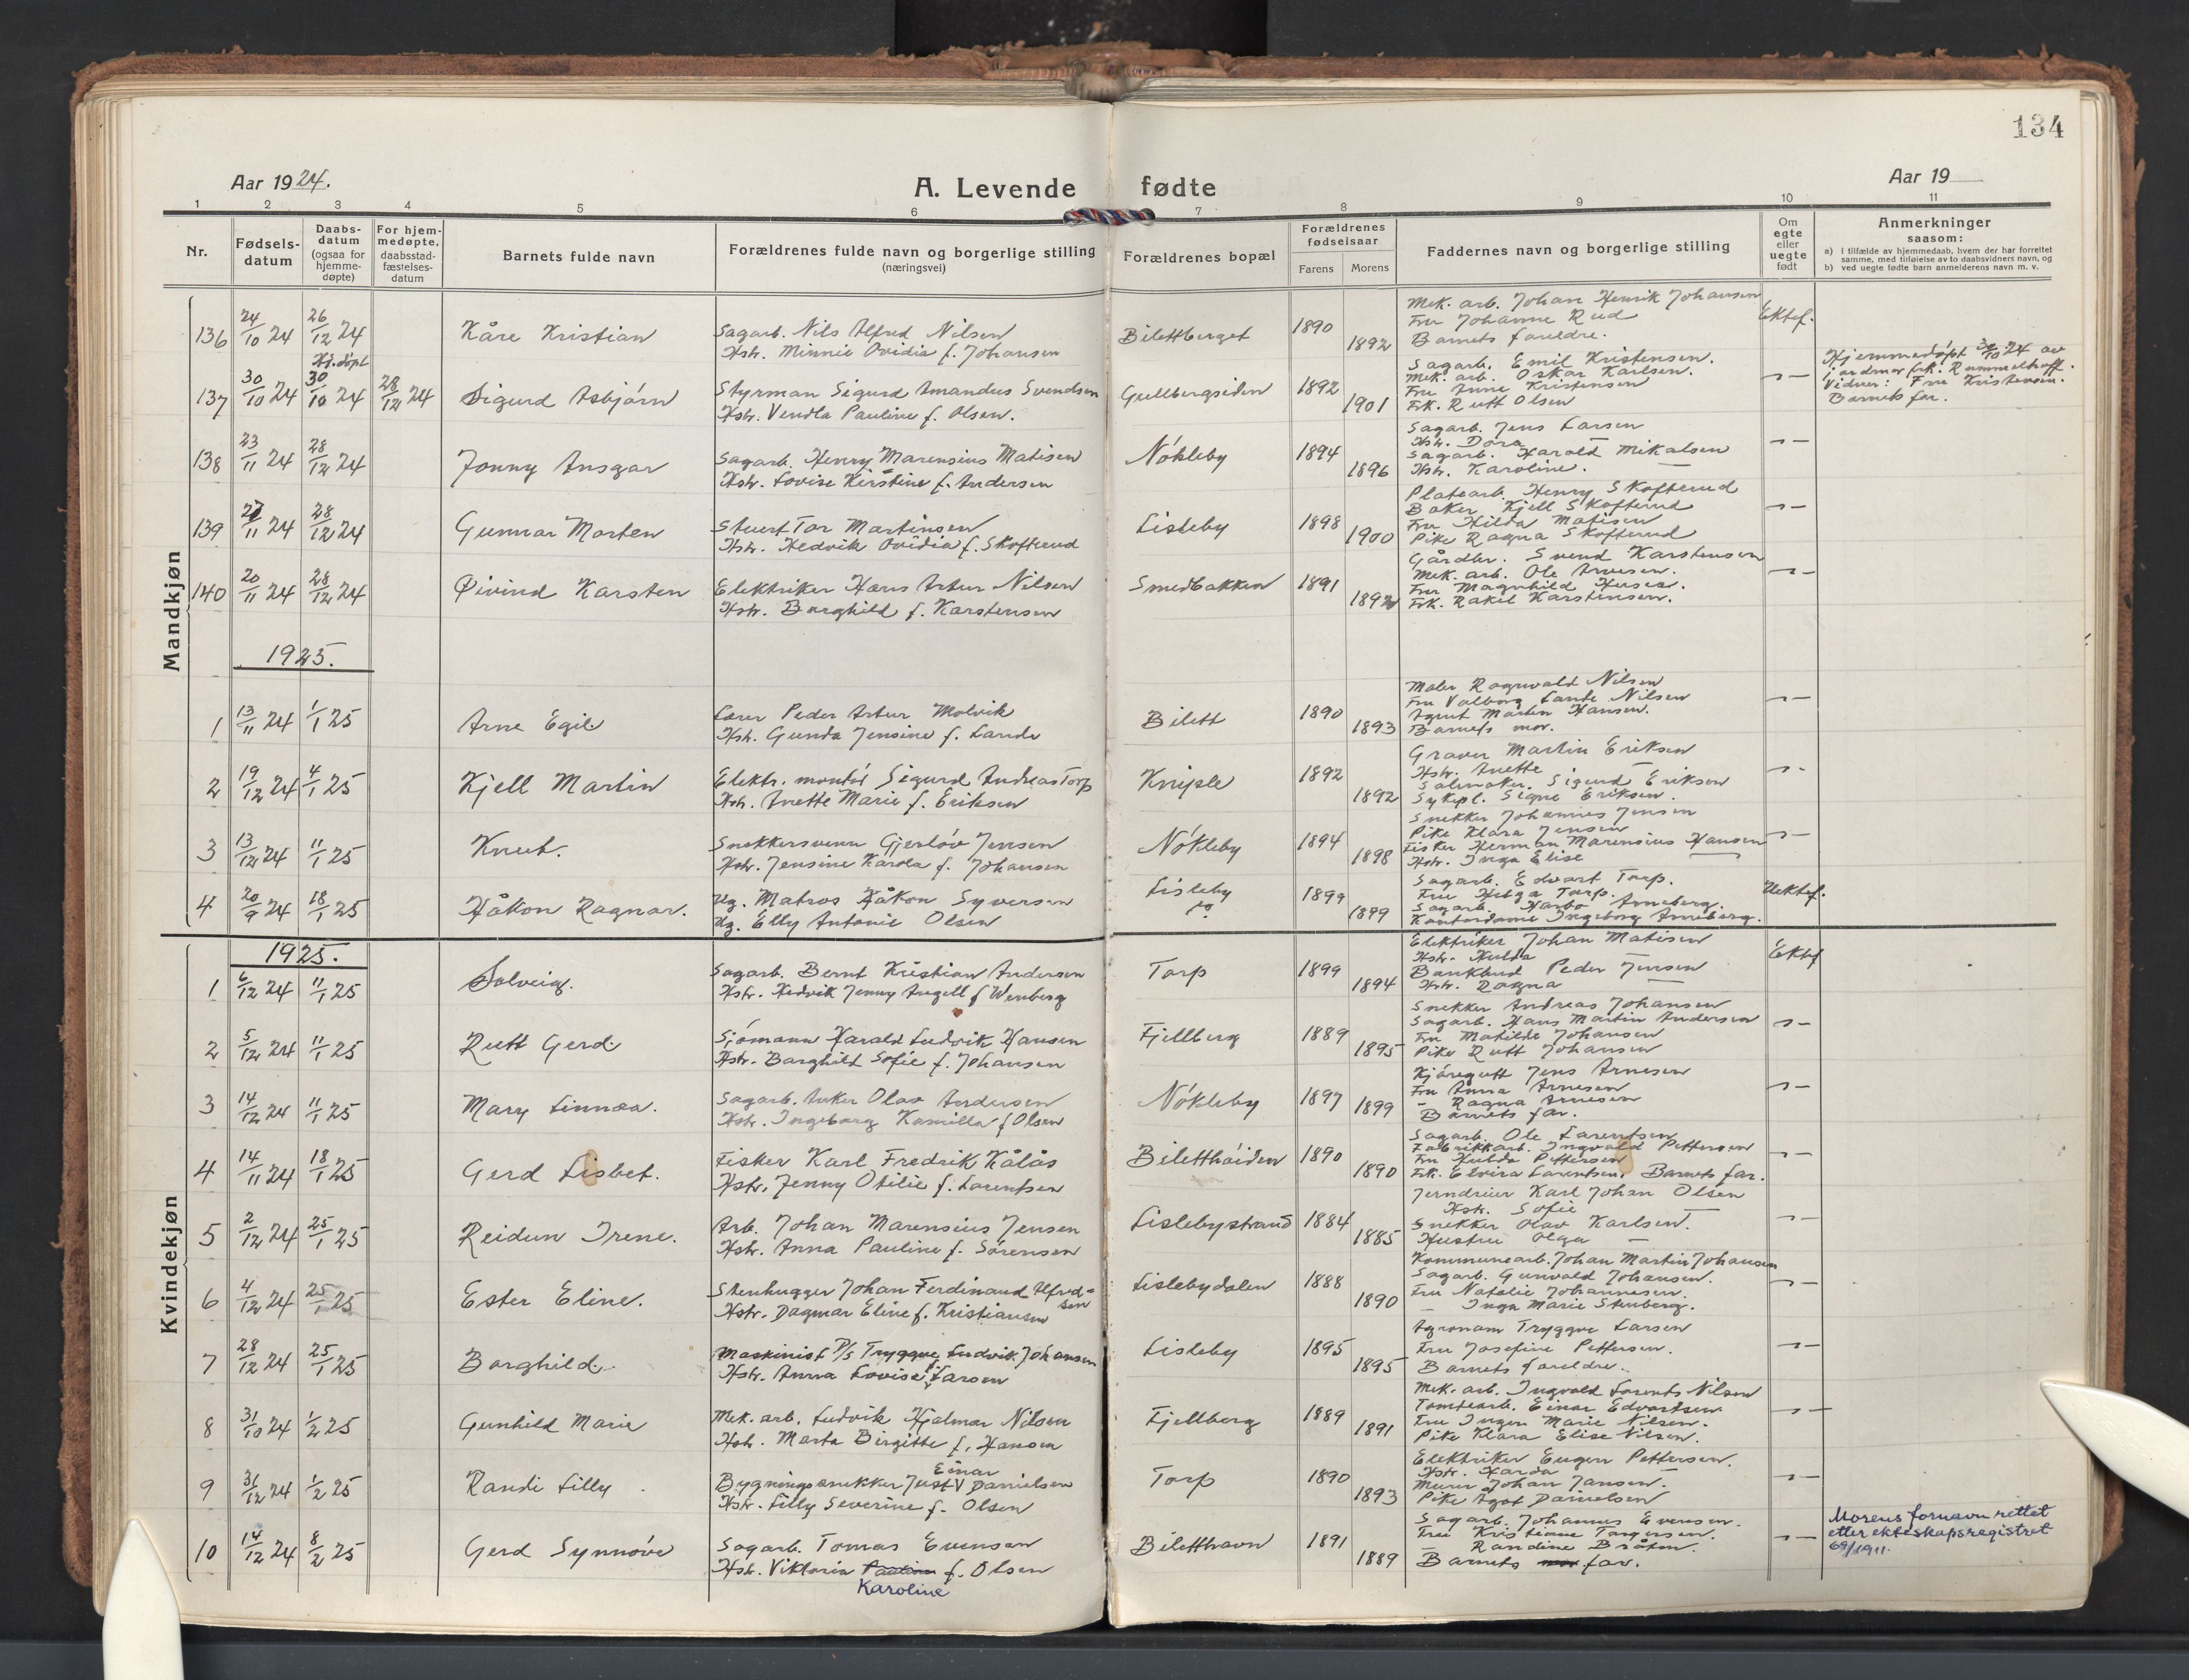 134
Aar 1924.
A. Levende fødte
Aar 19
1 2 3 4 5 6 7 8 9 10 11
Nr.
Fødsels-
datum
Daabs-
datum
(ogsaa for
hjemme-
døpte)
For hjem-
medøpte,
daabsstad-
fæstelses-
datum
Barnets fulde navn
Forældrenes fulde navn og borgerlige stilling
(næringsvei)
Forældrenes bopæl
Forældrenes
fødselsaar
Farens Morens
Faddernes navn og borgerlige stilling
Om
egte
eller
uegte
født
Anmerkninger
saasom:
a) i tilfælde av hjemmedaab, hvem der har forrettet
samme, med tilføielse av to daabsvidners navn, og
b) ved uegte fødte barn anmelderens navn m. v.
Mandkjøn
136 24/10 24 26/12 24 Kåre Kristian
Sagarb. Nils Alfred Nilsen
Hstr. Minnie Ovidia f. Johansen
Bilettberget 1890 1892
Mek. arb. Johan Henrik Johansen
Fru Johanne Rud
Barnets foreldre.
Ektef.
137 30/10 24 Hj.døpt 30/10 24 28/12 24 Sigurd Asbjørn
Styrman Sigurd Amandus Svendsen
Hstr. Vendla Pauline f. Olsen.
Gullbergsiden 1892 1901
Sagarb. Emil Kristensen.
Mek. arb. Oskar Karlsen.
Fru Anne Kristensen
Frk. Rutt Olsen
Hjemmedøpt 30/10 24 av
jordmor frk. Rummelhoff.
Vidner: Fru Kristensen.
Barnets far.
138 23/11 24 28/12 24 Jonny Ansgar
Sagarb. Henry Marensius Matisen
Hstr. Lovise Kirstine f. Andersen
Nøkleby 1894 1896
Sagarb. Jens Larsen
Hstr. Dora —
Sagarb. Harald Mikalsen
Hstr. Karoline. —
139 27/11 24 28/12 24 Gunnar Morten
Stuert Tor Martinsen
Hstr. Hedvik Ovidia f. Skofterud
Lisleby 1898 1900
Platearb. Henry Skofterud
Baker Kjell Skofterud
Fru Hilda Matisen
Pike Ragna Skofterud
140 20/11 24 28/12 24 Øivind Karsten
Elektriker Hans Artur Nilsen
Hstr. Borghild f. Karstensen
Smedbakken 1891 1892
Gårdbr. Svend Karstensen
Mek. arb. Ole Arnesen.
Fru Magnhild
Frk. Rakel Karstensen.
1925.
1 13/11 24 1/1 25 Arne Egil
Lærer Peder Artur Molvik
Hstr. Gunda Jensine f. Lande
Bilett 1890 1893
Maler Ragnvald Nilsen
Fru Valborg Lande Nilsen
Agent Martin Hansen.
Barnets mor.
2 19/12 24 4/1 25 Kjell Martin
Elektr. montør Sigurd Andreas Torp
Hstr. Anette Marie f. Eriksen
Kniple 1892 1892
Graver Martin Eriksen
Hstr. Anette —
Salmaker. Sigurd Eriksen
Sykepl. Signe Eriksen.
3 13/12 24 11/1 25 Knut.
Snekkersvenn Gjerløv Jensen
Hstr. Jensine Karola f. Johansen
Nøkleby 1894 1898
Snekker Johannes Jensen
Pike Klara Jensen
Fisker Herman Marensius Hansen
Hstr. Inga Elise —
4 20/9 24 18/1 25 Håkon Ragnar.
Ug. Matros Håkon Syversen
Ug. Elly Antonie Olsen
Lisleby
" 1899 1899
Sagarb. Edvart Torp.
Fru Helga Torp.
Sagarb. Harbo Anneberg.
Kontordame Ingeborg Anneberg.
Uektef.
Kvindekjøn
1925.
1 6/12 24 11/1 25 Solveig.
Sagarb. Bernt Kristian Andersen
Hstr. Hedvik Jenny Angell f Wenberg
Torp 1899 1894
Elektriker Johan Matisen
Hstr. Hulda —
Bankbud Peder Jensen
Hstr. Ragna —
Ektef
2 5/12 24 11/1 25 Rutt Gerd
Sjømann Harald Ludvik Hansen
Hstr. Borghild Sofie f. Johansen
Fjellberg 1889 1895
Snekker Andreas Johansen
Sagarb. Hans Martin Andersen
Fru Matilde Johansen
Pike Rutt Johansen
3 14/12 24 11/1 25 Mary Linnea.
Sagarb. Anker Olav Andersen
Hstr. Ingeborg Kamilla f Olsen
Nøkleby 1897 1899
Kjøregutt Jens Arnesen
Fru Anna Arnesen
- Ragna Arnesen
Barnets far.
4 14/11 24 18/1 25 Gerd Lisbet.
Fisker Karl Fredrik Kålås
Hstr. Jenny Otilie f. Larentsen
Biletthøiden 1890 1890
Sagarb. Ole Larentsen
Fabrikkarb. Ingvald Pettersen
Fru Hulda Pettersen
Frk. Elvira Larentsen. Barnets far.
5 2/12 24 25/1 25 Reidun Irene.
Arb. Johan Marensius Jensen
Hstr. Anna Pauline f. Sørensen
Lislebystrand 1884 1885
Jerndreier Karl Johan Olsen
Hstr. Sofie —
Snekker Olav Karlsen.
Hustru Olga —
6 4/12 24 25/1 25 Ester Eline.
Stenhugger Johan Ferdinand Ulfred=
sen
Hstr. Dagmar Eline f. Kristiansen
Lislebydalen 1888 1890
Kommunearb. Johan Martin Johansen
Sagarb. Gunvald Johansen.
Fru Natalie Johannesen.
— Inga Marie Stenberg.
7 28/12 24 25/1 25 Borghild.
Maskinist P/S Tryggve Ludvik Johansen
Hstr. Anna Lovise f. Larsen
Lisleby 1895 1895
Agronom Tryggve Larsen
Fru Josefine Pettersen.
Barnets foreldre.
8 31/10 24 1/2 25 Gunhild Marie
Mek. arb. Ludvik Hjalmar Nilsen
Hstr. Marta Birgitte f. Hansen
Fjellberg 1889 1891
Mek. arb. Ingvald Lorents Nilsen
Tomtearb. Einar Edvartsen.
Fru Inger Marie Nilsen.
Pike Klara Elise Nilsen.
9 31/12 24 1/2 25 Randi Lilly
Einar
Bygningssnekker Just V Danielsen
Hstr. Lilly Severine f. Olsen
Torp 1890 1893
Elektriker Eugen Pettersen.
Hstr. Harda —
Murer Johan Jansen.
Pike Ågot Danielsen
10 14/12 24 8/2 25 Gerd Synnøve
Sagarb. Tomas Evensen
Hstr. Viktoria Pauline f. Olsen
Karoline
Biletthavn 1891 1889
Sagarb. Johannes Evensen.
Fru Kristianne Torgersen.
— Randine Bråten.
Barnets mor far.
Morens fornavn rettet
etter ekteskapsregistret
69/1911.